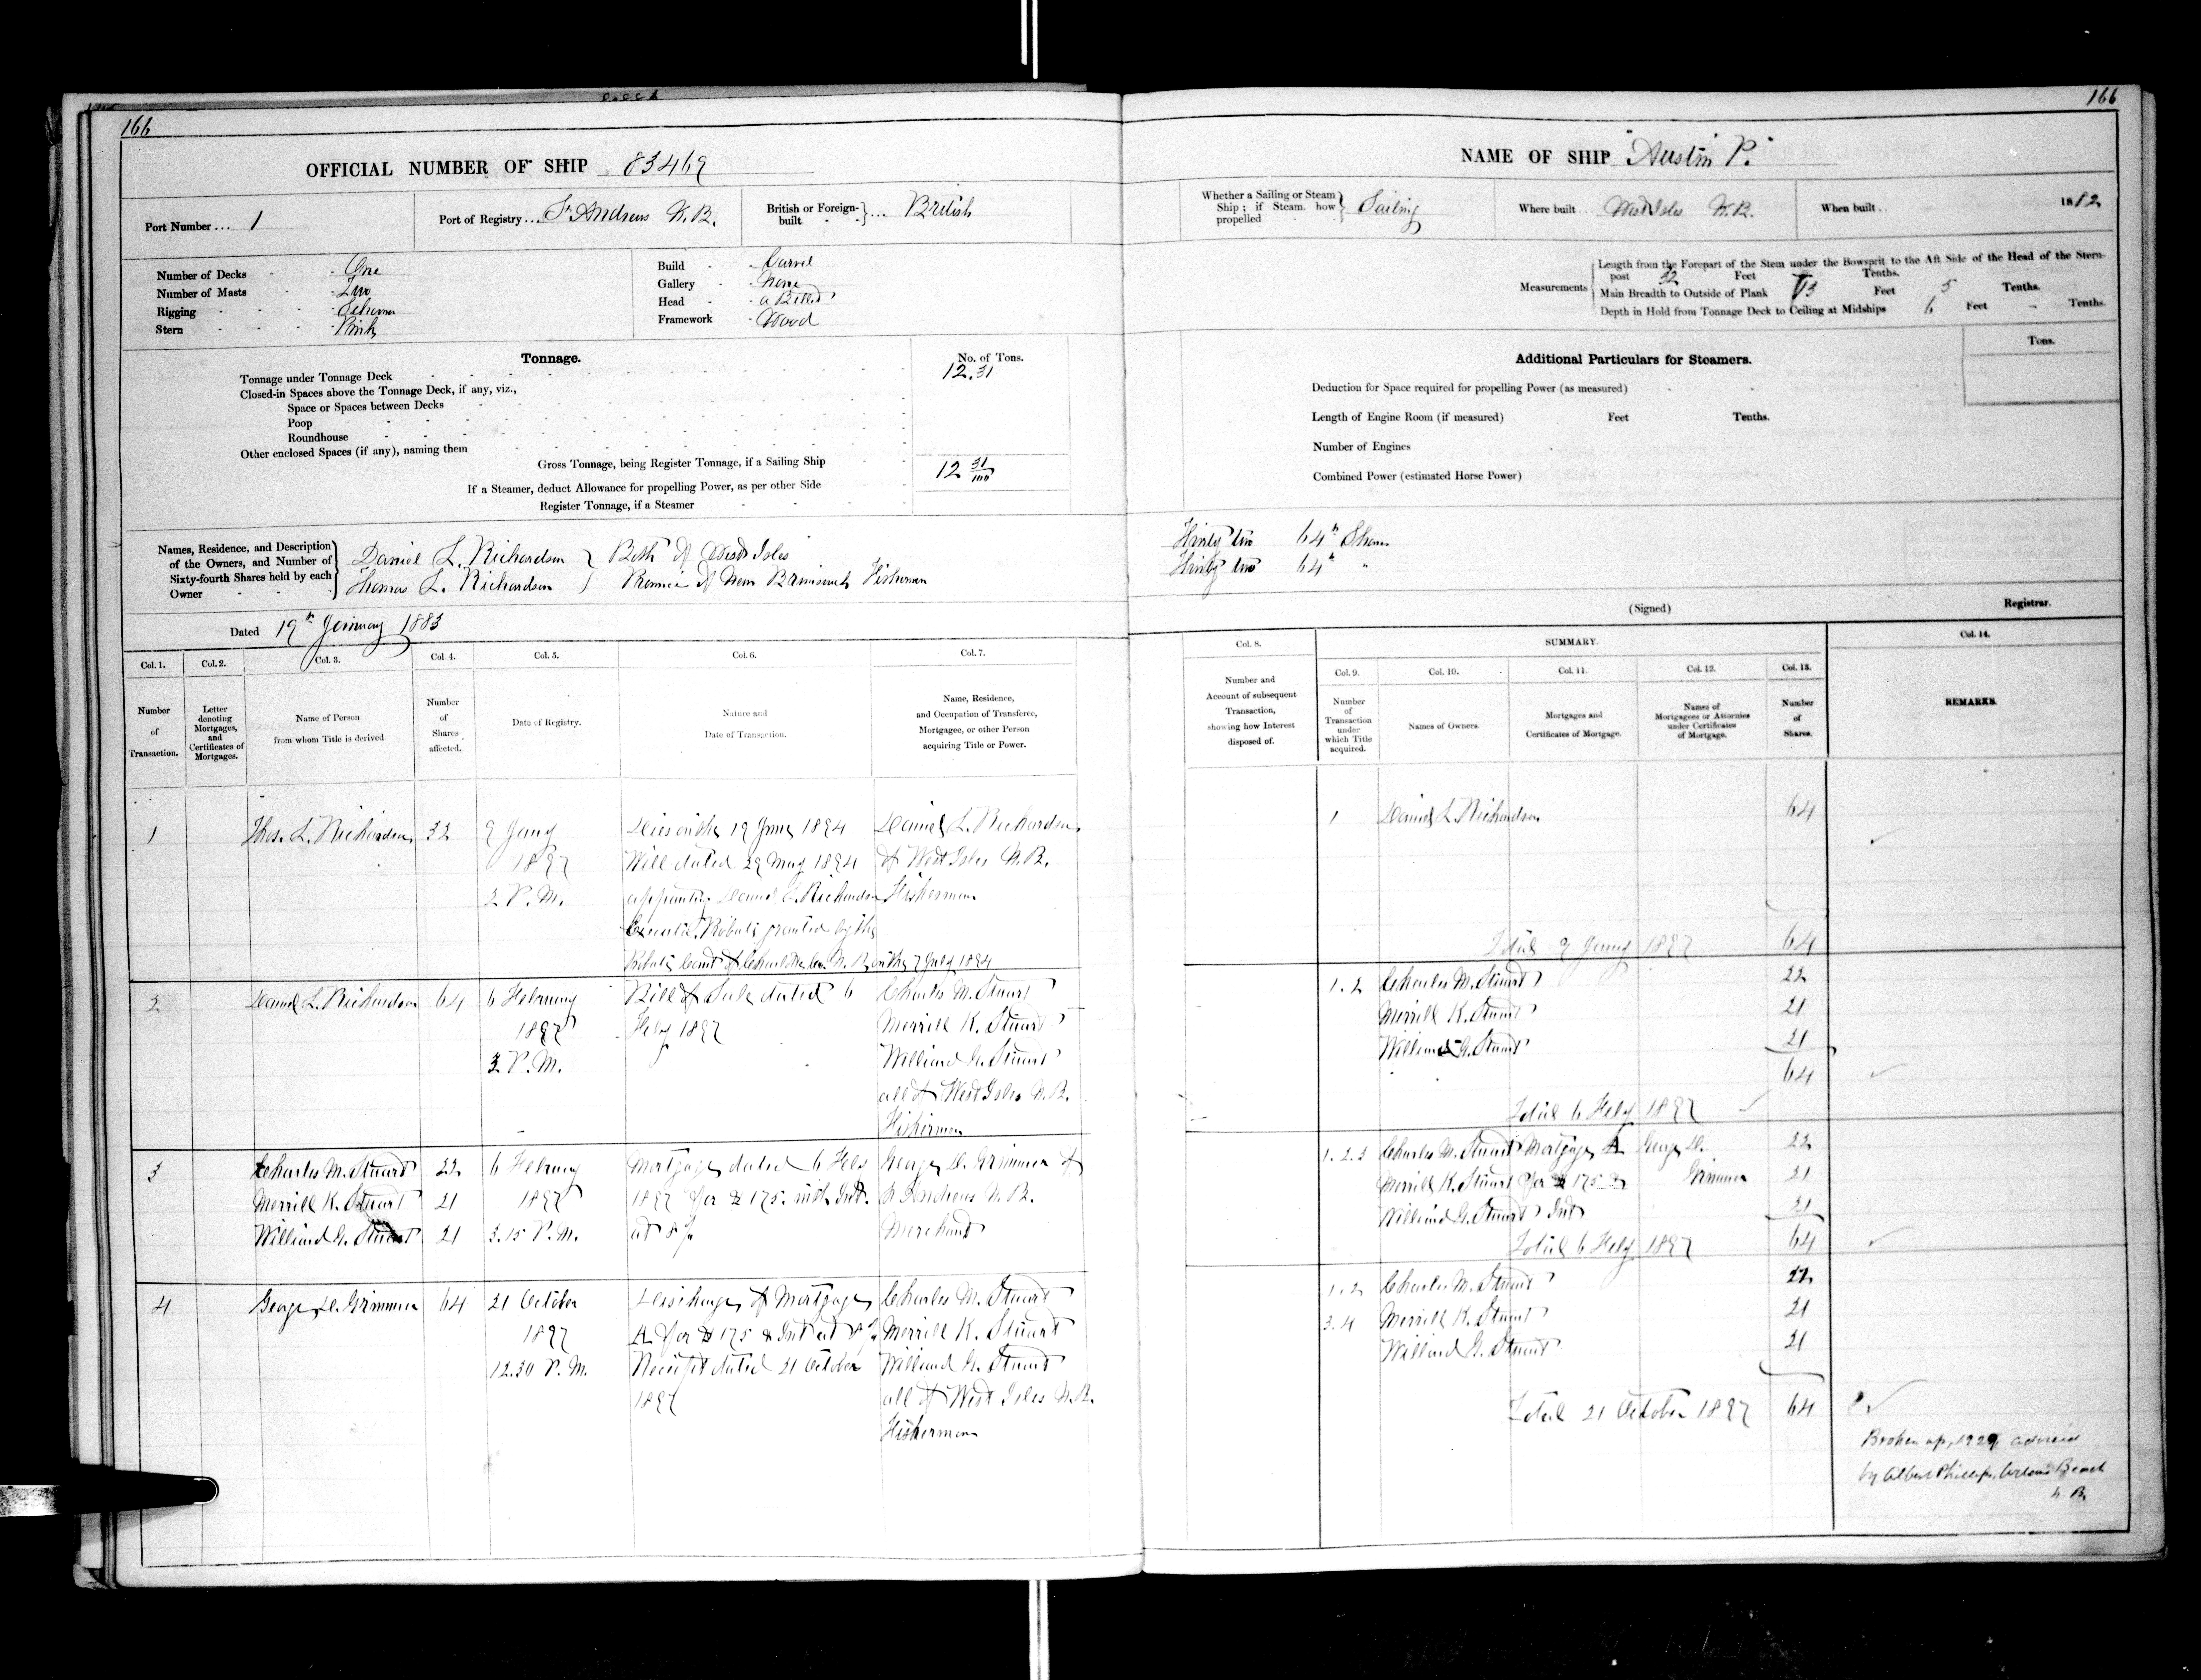 166
OFFICIAL NUMBER OF SHIP 83469
Port Number ... 1
Port of Registry ... St Andrews N.B.
British or Foreign-built } ... British
Number of Decks - One
Number of Masts - Two
Rigging - Schooner
Stern - Pink
Build - Carvel
Gallery - None
Head - a Billet
Framework - Wood
Tonnage.
No. of Tons.
Tonnage under Tonnage Deck 12.31
Closed-in Spaces above the Tonnage Deck, if any, viz.,
Space or Spaces between Decks
Poop
Roundhouse
Other enclosed Spaces (if any), naming them
Gross Tonnage, being Register Tonnage, if a Sailing Ship 12 31/100
If a Steamer, deduct Allowance for propelling Power, as per other Side
Register Tonnage, if a Steamer
Names, Residence, and Description
of the Owners, and Number of
Sixty-fourth Shares held by each
Owner
Daniel L. Richardson } Both of West Isles
Thomas L. Richardson } Province of New Brunswick Fishermen
Dated 19th January 1883
Col. 1. Col. 2. Col. 3. Col. 4. Col. 5. Col. 6. Col. 7.
Number of Transaction.
Letter denoting Mortgages, and Certificates of Mortgages.
Name of Person from whom Title is derived
Number of Shares affected.
Date of Registry.
Nature and Date of Transaction.
Name, Residence, and Occupation of Transferee, Mortgagee, or other Person acquiring Title or Power.
1 Thos. L. Richardson 32 9 Jany Died on the 19 June 1894 Daniel L. Richardson
1897 Will dated 29 May 1894 of West Isles N.B.
2 P.M. appointing Daniel L. Richardson Fisherman
Executor. Probate granted by the
Probate Court of Charlotte Co. N.B. on the 7 July 1894
2 Daniel L. Richardson 64 6 February Bill of Sale dated 6 Charles M. Stuart
1897 Feby 1897 Merrill K. Stuart
3 P.M. Williard G. Stuart
all of West Isles N.B.
Fishermen
3 Charles M. Stuart 22 6 February Mortgage dated 6 Feby George D. Grimmer of
Merrill K. Stuart 21 1897 1897 for $175. with Int. St Andrews N.B.
Williard G. Stuart 21 3.15 P.M. at 8 % Merchant
4 George D. Grimmer 64 21 October Discharge of Mortgage Charles M. Stuart
1897 A for $175 & Int at 8 % Merrill K. Stuart
12.30 P.M. Receipt dated 21 October Williard G. Stuart
1897 all of West Isles N.B.
Fishermen
166
NAME OF SHIP "Austin P."
Whether a Sailing or Steam Ship; if Steam, how propelled } Sailing
Where built West Isles N.B.
When built 1882
Measurements
Length from the Forepart of the Stem under the Bowsprit to the Aft Side of the Head of the Stern-
post 32 Feet Tenths.
Main Breadth to Outside of Plank 13 Feet 5 Tenths.
Depth in Hold from Tonnage Deck to Ceiling at Midships 6 Feet - Tenths.
Tons.
Additional Particulars for Steamers.
Deduction for Space required for propelling Power (as measured)
Length of Engine Room (if measured) Feet Tenths.
Number of Engines
Combined Power (estimated Horse Power)
Thirty two 64th Shares
Thirty two 64th "
(Signed) Registrar.
Col. 8. SUMMARY. Col. 14.
Col. 9. Col. 10. Col. 11. Col. 12. Col. 13.
Number and Account of subsequent Transaction, showing how Interest disposed of.
Number of Transaction under which Title acquired.
Names of Owners.
Mortgages and Certificates of Mortgage.
Names of Mortgagees or Attornies under Certificates of Mortgage.
Number of Shares.
REMARKS.
1 Daniel L. Richardson 64
Total 9 Jany 1897 64
1.2 Charles M. Stuart 22
Merrill K. Stuart 21
Williard G. Stuart 21
64
Total 6 Feby 1897
1.2.3 Charles M. Stuart Mortgage A George D. 22
Merrill K. Stuart for $175 & Grimmer 21
Williard G. Stuart Int 21
Total 6 Feby 1897 64
1.2 Charles M. Stuart 22
3.4 Merrill K. Stuart 21
Williard G. Stuart 21
Total 21 October 1897 64
Broken up, 1929, advised
by Albert Phillips, Wilson's Beach
N.B.